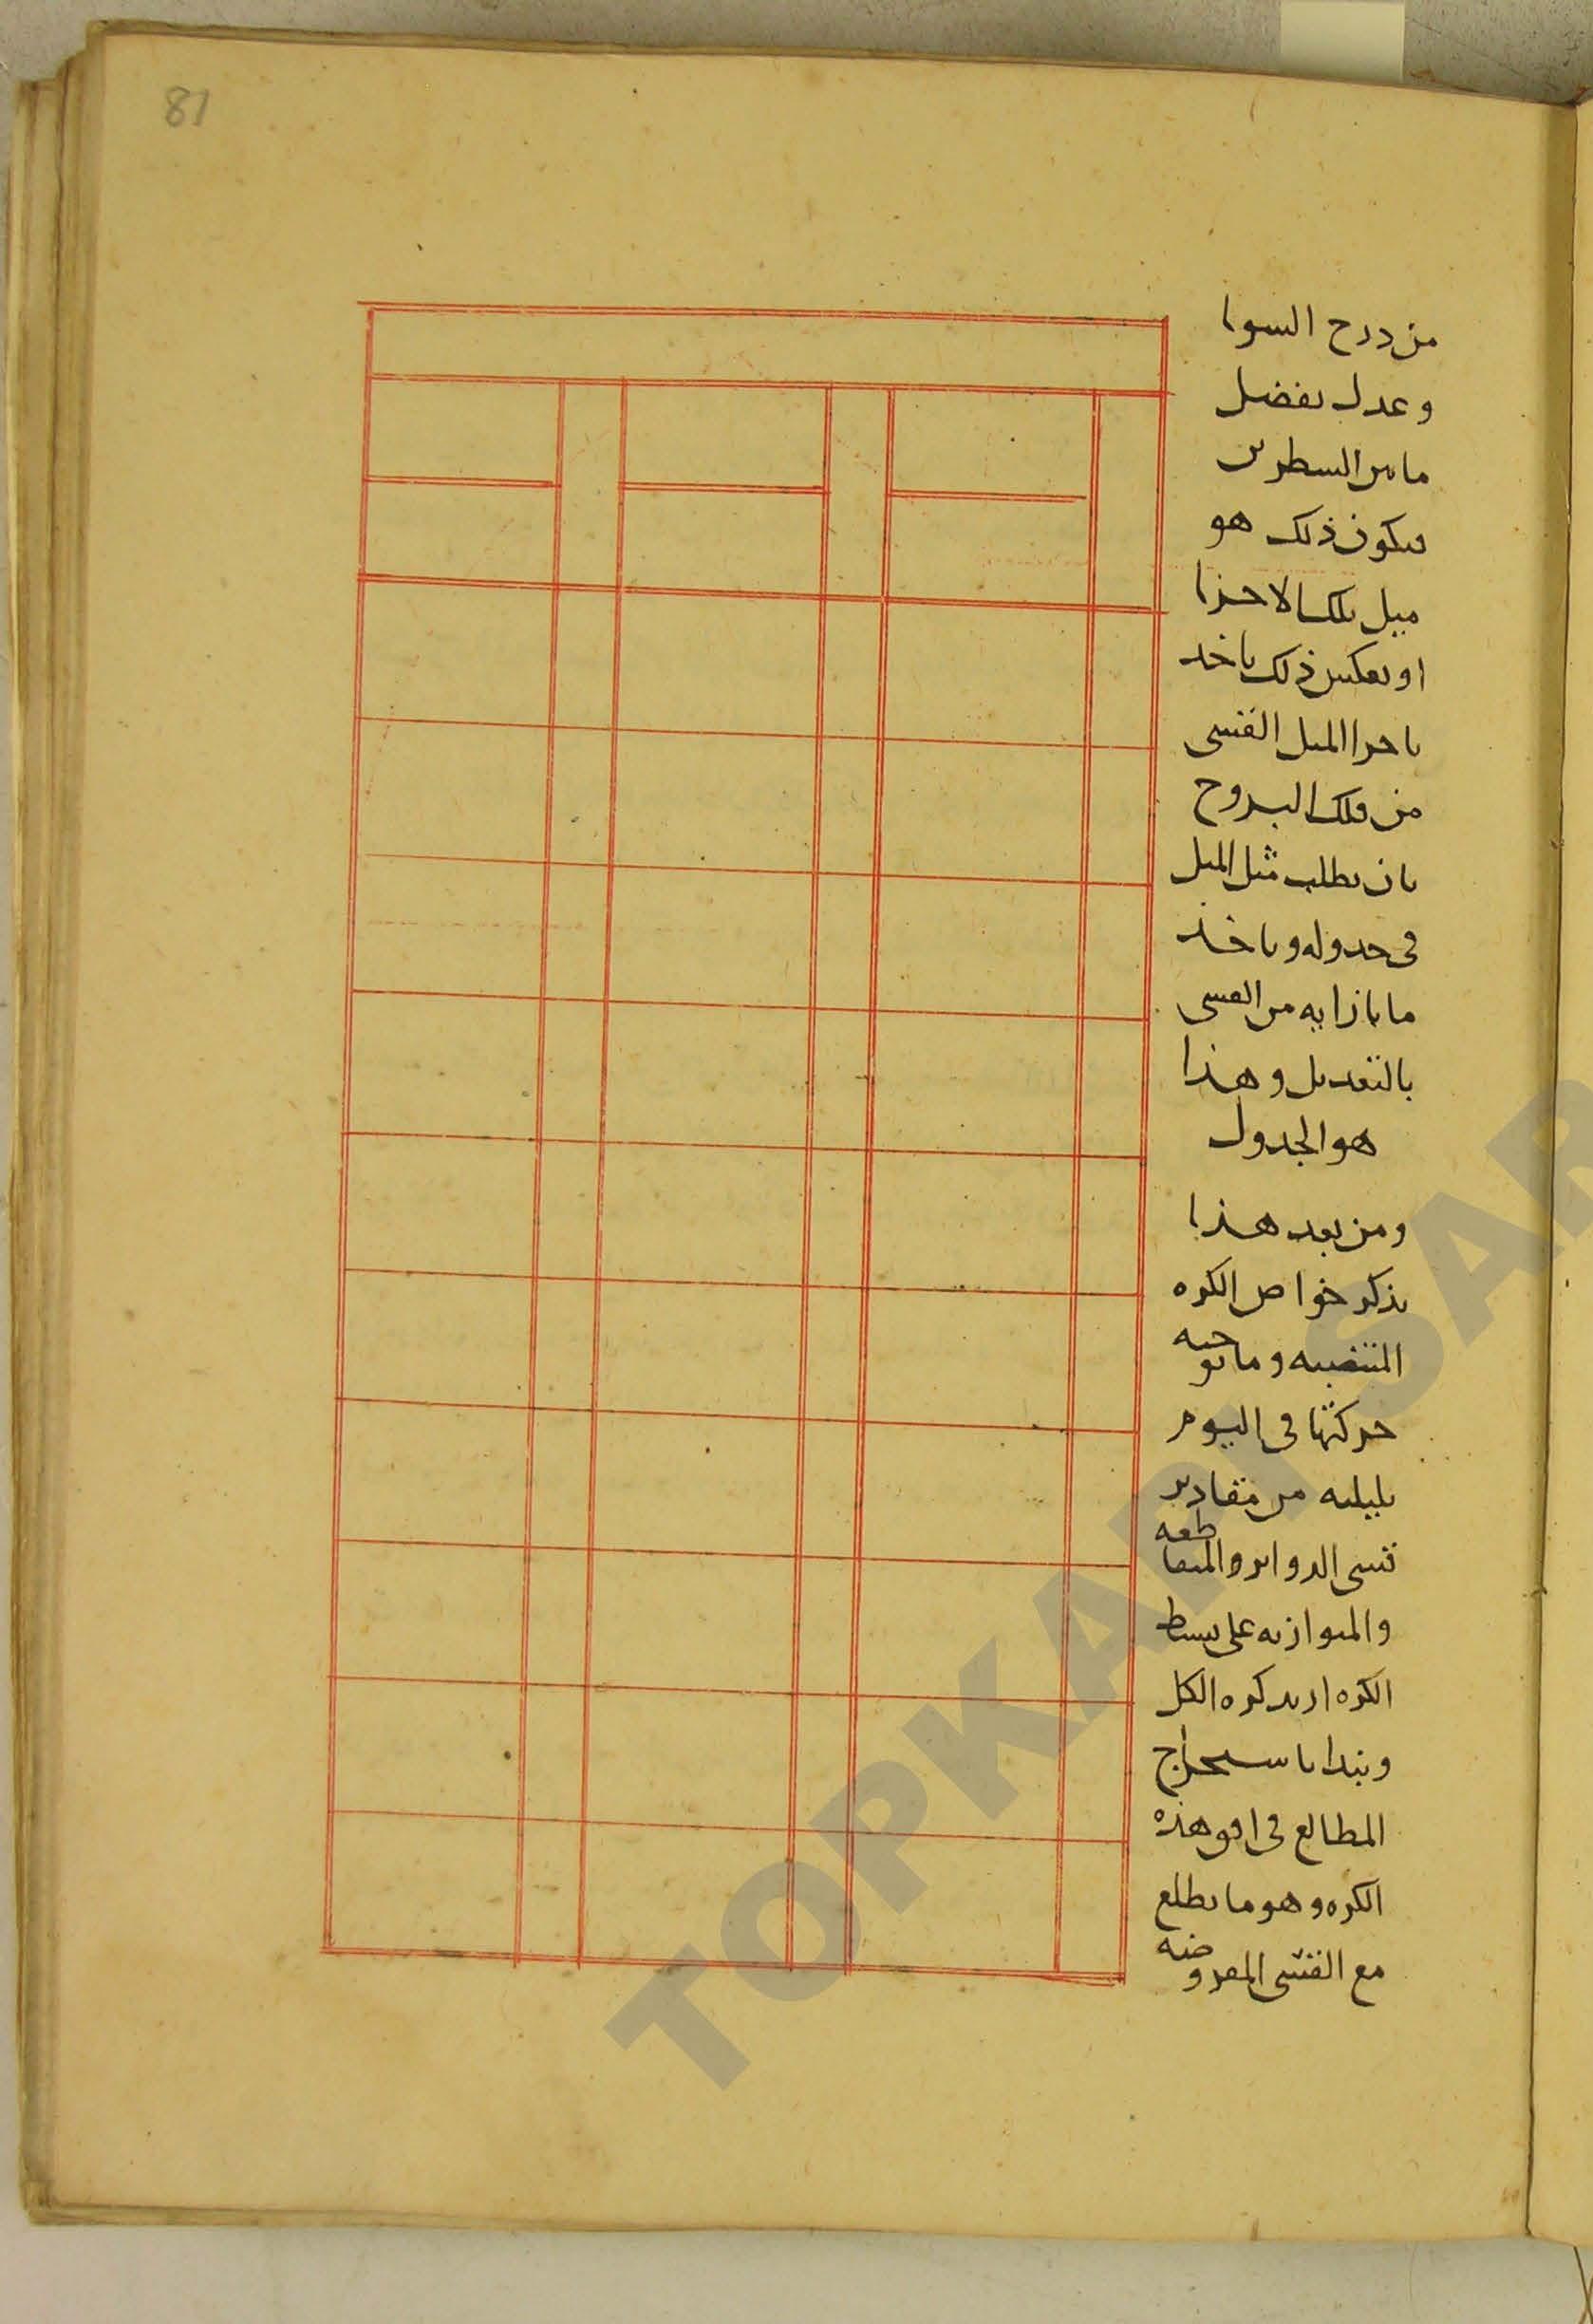 81
من درج السوا
وعدل بفضل
ما بين السطرين
فيكون ذلك هو
ميل تلك الاجزا
او بعكس ذلك ناخذ
باجزا الميل القسى
من فلك البروج
بان نطلب مثل الميل
فى جدوله وناخذ
ما بازايه من القسى
بالتعديل وهذا
هو الجدول
ومن بعد هذا
نذكر خواص الكره
المنتصبه وما توجبه
حركتها فى اليوم
بليلته من مقادير
قسى الدواير والمتقاطعه
والمتوازيه على بسيط
الكره اريد كره الكل
ونبدا باستخراج
المطالع فى افق هذه
الكره وهو ما يطلع
مع القسى المفروضه
TOPKAPI SAR